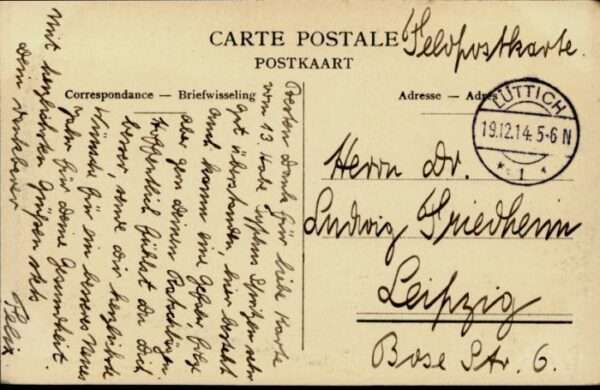 CARTE POSTALE
POSTKAART
Feldpostkarte.
Correspondance — Briefwisseling
Adresse — Adres
LÜTTICH
19.12.14. 5-6 N
* 1 *
Herrn Dr.
Ludwig Friedheim
Leipzig
Bose Str. 6.
Besten Dank für liebe Karte
vom 13. Habe Typhus Spritzen sehr
gut überstanden, hier besteht
auch kaum eine Gefahr, folge
aber gern Deinen Ratschlägen.
Hoffentlich fühlst Du Dich
besser, sende Dir herzlichste
Wünsche für ein besseres Neues
Jahr für Deine Gesundheit.
Mit herzlichsten Grüßen stets
Dein dankbarer
Felix